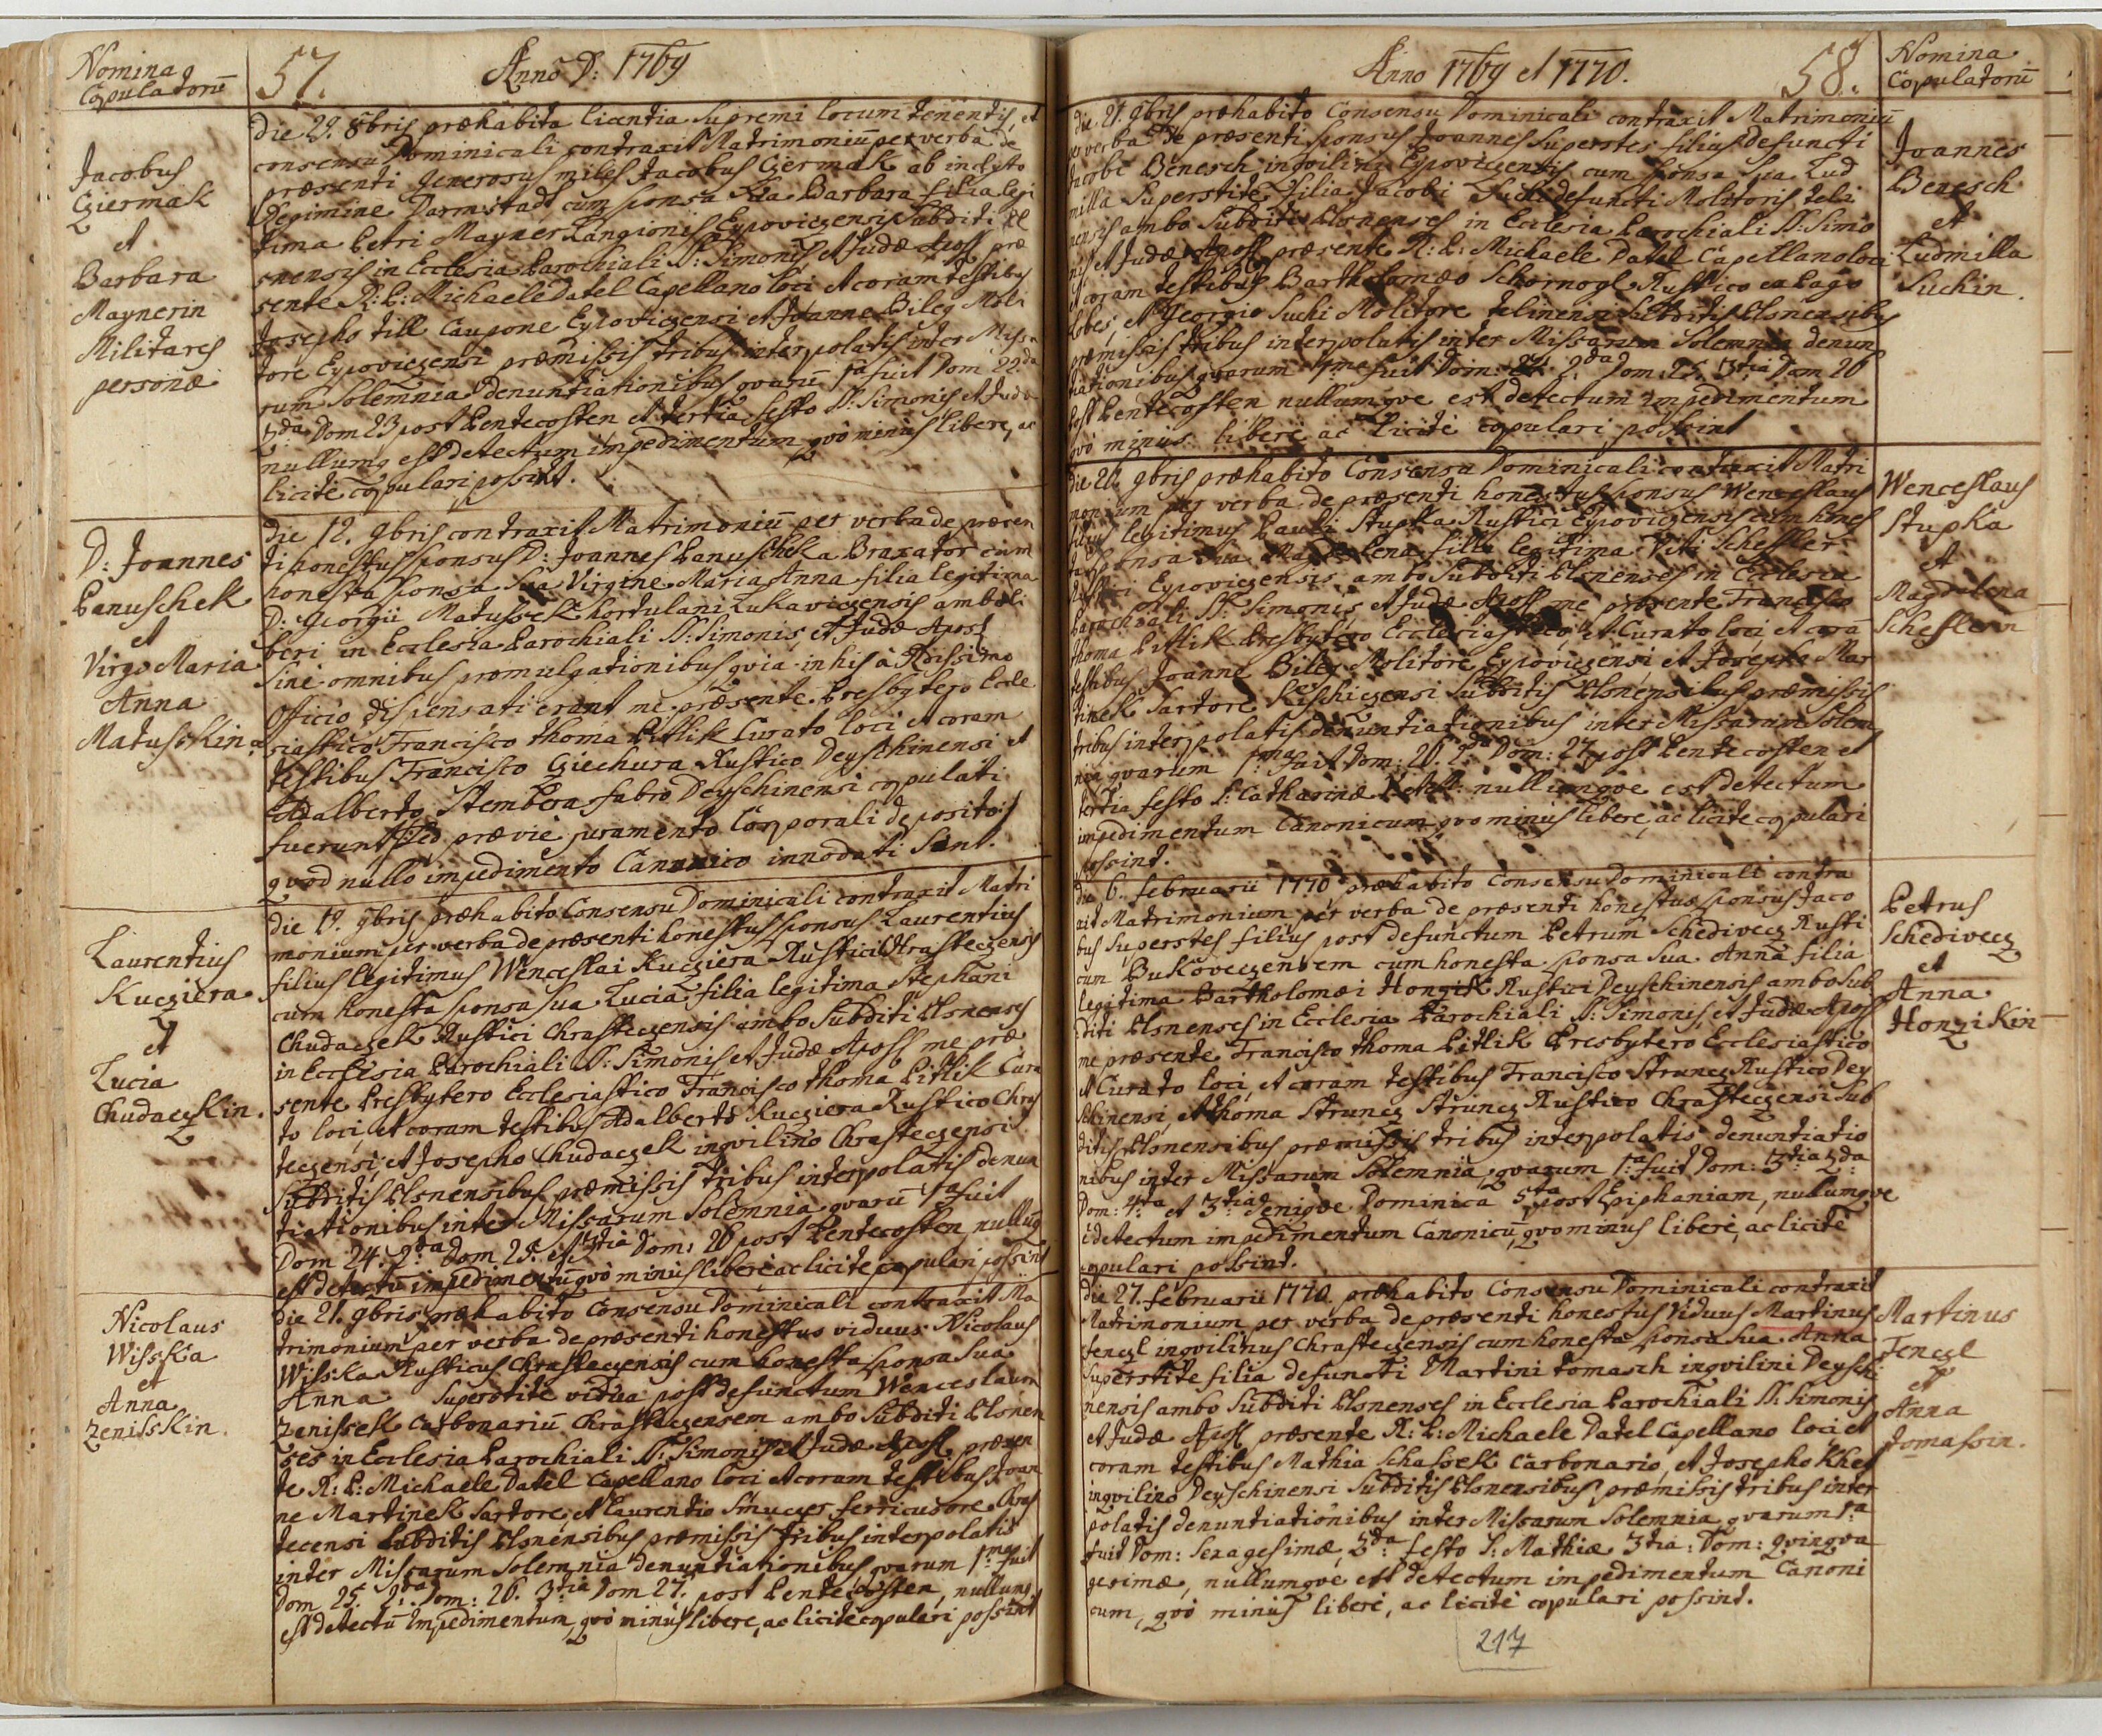 Nomina
Copulatorū
57.
Anno D: 1769
Jacobus
Cziermak
et
Barbara
Maynerin
Militares
personæ
Die 29. 8bris præhabita licentia Supremi locum tenentis, et
consensu Dominicali contraxit Matrimoniū per verba de
præsenti generosus miles Jacobus Czermak ab inclyto
Regimine Darmstadt cum sponsa sua Barbara filia legi
tima Petri Mayner Eypoviczensis Subditi Pl
snensis in Ecclesia Parochiali SS: Simonis et Judæ Apost præ
sente R: P: Michaele Datel Capellano loci et coram testibus
Josepho till Caupone Eypoviczensi et Joanne Bileg Moli
tore Eypoviczensi præmissis tribus interpolatis inter Missa
rum Solemnia denuntiationibus qvarū 1a fuit Dom 22da
2da Dom 23 post Pentecosten et tertia festo SS: Simonis et Judæ
nullumq est detectum impedimentum qvo minus libere, ac
licite copulari possint.
D: Joannes
Panuschek
et
Virgo Maria
Anna
Matuskin
die 12. 9bris contraxit Matrimoniū per verba de præsen
ti honestus sponsus D: Joannes Panuschka Braxator cum
honesta sponsa sua Virgine Maria Anna filia legitima
D: Georgii Matussek hortulani Lukaviczensis ambo li
beri in Ecclesia Parochiali SS: Simonis et Judæ Apost
Sine omnibus promulgationibus qvia in his à Rdissimo
Officio dispensati erant me præsente Presbytero Eccle
siastico Francisco Thoma Pitlik Curato loci et coram
testibus Francisco Giechura Rustico Deyschinensi et
Adalberto Stembera fabro Deyschinensi copulati
fuerunt sed prævie juramento Corporali deposito
qvod nullo impedimento Canonico innodati sint.
Laurentius
Kucziera
et
Lucia
Chudaczkin.
die 19. 9bris præhabito Consensu Dominicali contraxit Matri
monium per verba de præsenti honestus sponsus Laurentius
filius legitimus Wenceslai Kucziera Rustici Chrasteczensis
cum honesta sponsa sua Lucia filia legitima Stephani
Chudaczek Rustici Chrasteczensis ambo Subditi Plsnenses
in Ecclesia Parochiali SS: Simonis et Judæ Apost me præ
sente Presbytero Ecclesiastico Francisco Thoma Pitlik Cura
to loci et coram testibus Adalberto Kucziera Rustico Chras
teczensi, et Josepho Chudaczek inqvilino Chrasteczensi
Subditis Plsnensibus præmissis tribus interpolatis denun
tiationibus inter Missarum Solemnia qvarū 1a fuit
Dom 24. 2da Dom 25. et 3tia Dom: 26 post Pentecosten nullūq
est detectū impedimentū qvo minus libere ac licite copulari possint
Nicolaus
Wisska
et
Anna
Zenisskin.
die 21. 9bris præhabito Consensu Dominicali contraxit Ma
trimonium per verba de præsenti honestus viduus Nicolaus
Wisska Rusticus Chrasteczensis cum honesta sponsa sua
Anna Superstite vidua post defunctum Wenceslaum
Zenissek Carbonariū Chrasteczensem ambo Subditi Plsnen
ses in Ecclesia Parochiali SS: Simonis et Judæ Apost præsen
te R: P: Michaele Datel Capellano loci et coram testibus Joan
ne Martinek Sartore, et Laurentio Smuczer ferricusore Chras
tecensi Subditis Plsnensibus præmissis tribus interpolatis
inter Missarum Solemnia denuntiationibus qvarum 1ma fuit
Dom 25. 2da Dom: 26. 3tia Dom 27. post Pentecosten, nullumq
est detectū impedimentum, qvo minus libere, ac licite copulari possint
Anno 1769 et 1770.
58.
Nomina
Copulatorū
die 21. 9bris præhabito Consensu Dominicali contraxit Matrimoniū
per verba de præsenti sponsus Joannes Superstes filius defuncti
Jacobi Benesch inqvilini Eypoviczensis cum sponsa sua Lud
milla Superstite filia Jacobi Suchi defuncti Molitoris teli
nensis ambo Subditi Plsnenses in Ecclesia Parochiali SS: Simo
nis et Judæ Apost præsente R: P: Michaele Datel Capellano loci
et coram testibus Bartholomæo Schornogl Rustico ex Pago
Lobes, et Georgio Suchi Molitore telinensi Subditis Plsnensibus
præmissis tribus interpolatis inter Missarum Solemnia denun
tiationibus qvarum 1ma fuit Dom: 24. 2da Dom: 25. 3tia Dom 26
post Pentecosten nullumqve est detectum impedimentum
qvo minus libere ac licite copulari possint
Joannes
Benesch
et
Ludmilla
Suchin.
die 26. 9bris præhabito Consensu Dominicali contraxit Matri
monium per verba de præsenti honestus sponsus Wenceslaus
filius legitimus Pauli Stupka Rustici Eypoviczensis cum hones
ta sponsa sua Magdalena filia legitima Viti Scheffler
Rustici Eypoviczensis ambo Subditi Plsnenses in Ecclesia
Parochiali SS: Simonis et Judæ Apost me præsente Francisco
Thoma Pitlik Presbytero Ecclesiastico et Curato loci et corā
testibus Joanne Bileg Molitore Eypoviczensi et Josepho Mar
tinek Sartore Kischiczensi Subditis Plsnensibus præmissis
tribus interpolatis denuntiationibus inter Missarum Solem
nia qvarum 1ma fuit Dom: 26. 2da Dom: 27 post Pentecosten et
tertia festo S: Catharinæ V: et M: nullumqve est detectum
impedimentum Canonicum qvo minus libere, ac licite copulari
possint.
Wenceslaus
Stupka
et
Magdalena
Scheflerin
die 6. februarii 1770 præhabito Consensu Dominicali contra
xit Matrimonium per verba de præsenti honestus sponsus Jaco
bus Superstes filius post defunctum Petrum Schedivecz Rusti
cum Bukoveczensem cum honesta sponsa sua Anna filia
legitima Bartholomæi Honzik Rustici Deyschinensis ambo Sub
diti Plsnenses in Ecclesia Parochiali SS: Simonis et Judæ Apost
me præsente Francisco Thoma Pitlik Presbytero Ecclesiastico
et Curato loci, et coram testibus Francisco Struncz Rustico Dey
schinensi, et Thoma Struncz Struncz Rustico Chrasteczensi Sub
ditis Plsnensibus præmissis tribus interpolatis denuntiatio
nibus inter Missarum Solemnia, qvarum 1a fuit Dom: 3tia 2da
Dom: 4ta et 3tia deniqve Dominica 5ta post Epiphaniam, nullumqve
detectum impedimentum Canonicū, qvo minus libere, ac licite
copulari possint.
Petrus
Schedivecz
et
Anna
Honzikin
die 27. februarii 1770. præhabito Consensu Dominicali contraxit
Matrimonium per verba de præsenti honestus Viduus Martinus
Jenczl inqvilinus Chrasteczensis cum honesta sponsa sua Anna
Superstite filia defuncti Martini Tomasch inqvilini Deyschi
nensis ambo Subditi Plsnenses in Ecclesia Parochiali SS: Simonis
et Judæ Apost præsente R: P: Michaele Datel Capellano loci et
coram testibus Mathia Schassek Carbonario, et Josepho Khes
inqvilino Deyschinensi Subditis Plsnensibus, præmissis tribus inter
polatis denuntiationibus inter Missarum Solemnia qvarum 1a
fuit Dom: Sexagesimæ, 2da festo S: Mathiæ 3tia: Dom: qvinqva
gesimæ, nullumqve est detectum impedimentum Canoni
cum, qvo minus libere, ac licite copulari possint.
Martinus
Jenczl
et
Anna
Tomassin.
217